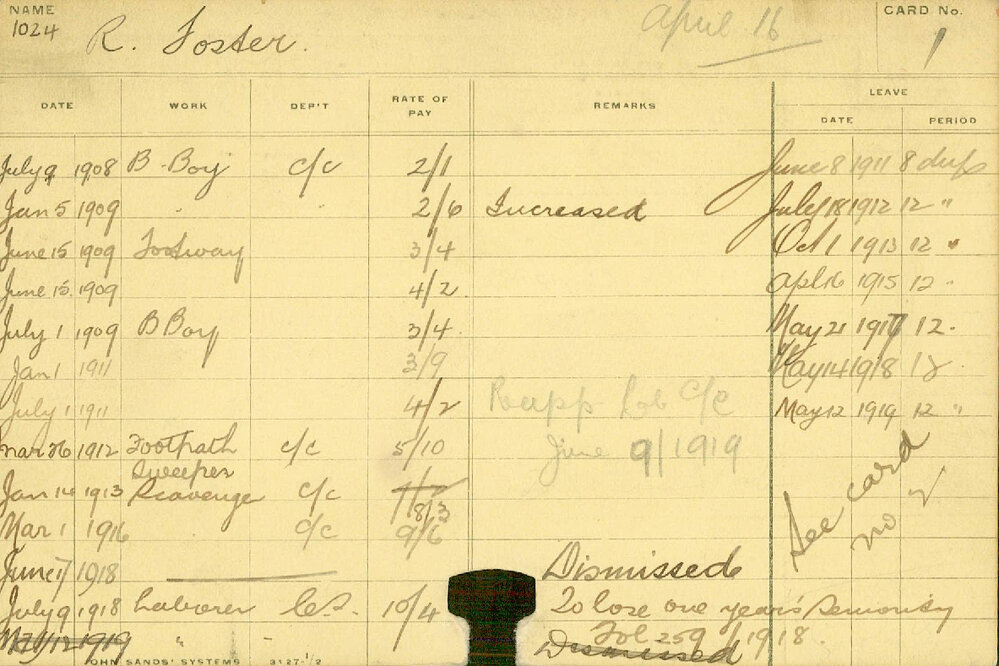 NAME
1024 R. Foster. April 16 CARD No. 1
DATE WORK DEP'T RATE OF PAY REMARKS LEAVE
DATE PERIOD
July 9 1908 B-Boy c/c 2/1 June 8 1911 8 days
Jan 5 1909 " 2/6 Increased July 18 1912 12 "
June 15 1909 Footway 3/4 Oct 1 1913 12 "
June 15. 1909 4/2 Apl 16 1915 12 "
July 1 1909 B Boy 3/4 May 21 1917 12.
Jan 1 1911 3/9 May 14 1918 12
July 1 1911 4/2 Reapp c/c May 12 1919 12 "
Mar 26 1912 Footpath Sweeper c/c 5/10 June 9/1919
Jan 14 1913 Scavenge c/c 8/3 See card no 2
Mar 1 1916 c/c 9/6
June 17 1918 Dismissed
July 9 1918 Laborer 10/4 To lose one year's Seniority
May 12 1919 " Fol 259/1918.
Dismissed
JOHN SANDS' SYSTEMS 3127-1/2